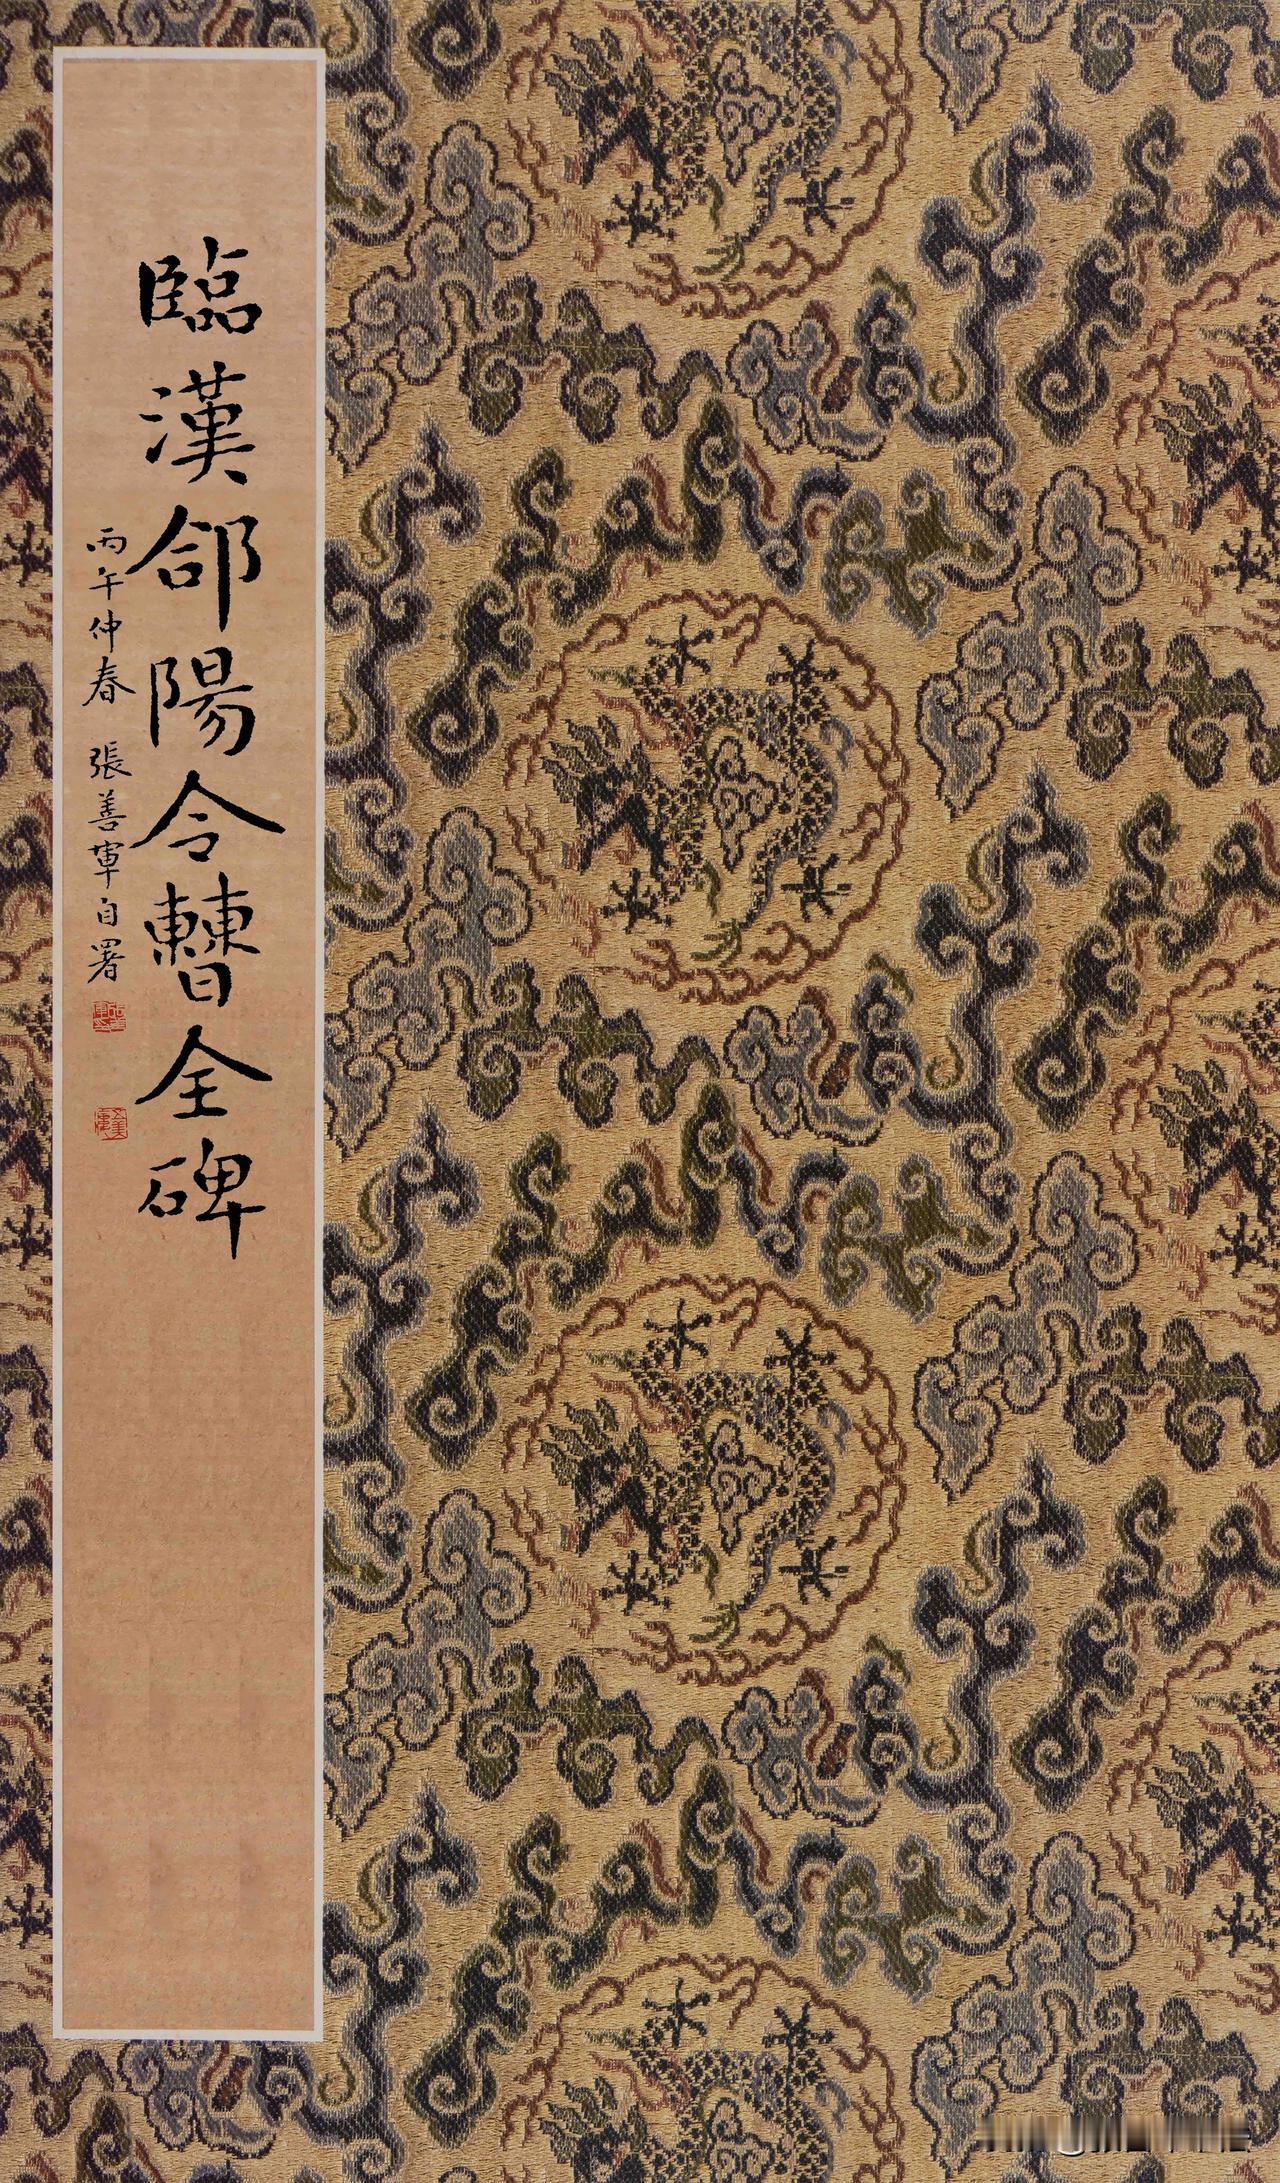 臨漢郃陽令曹全碑
丙午仲春 張善軍自署